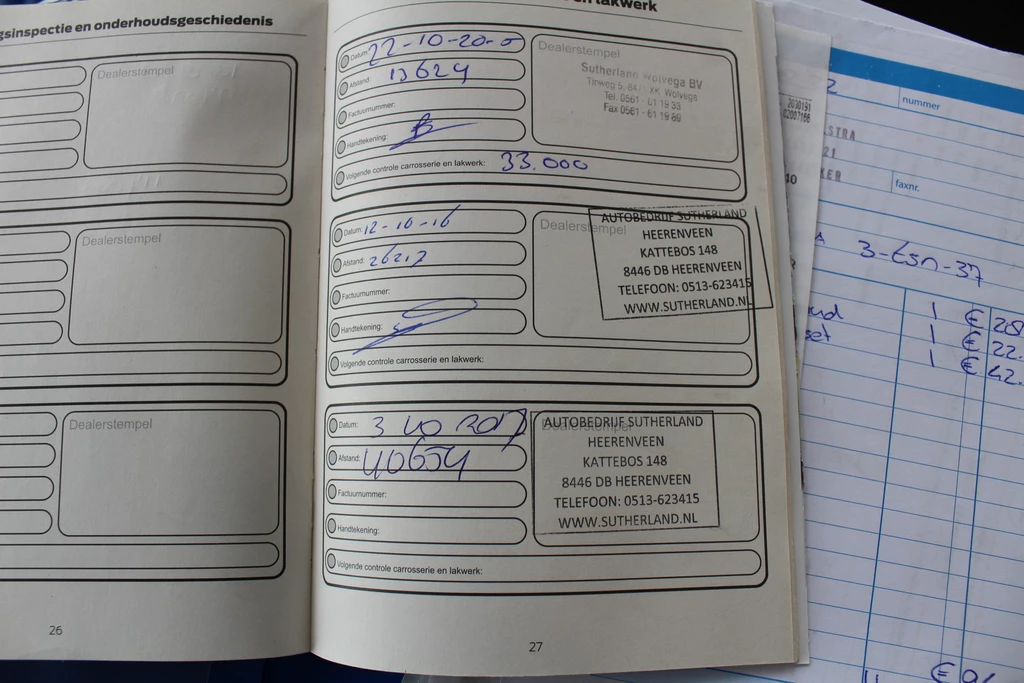 gsinspectie en onderhoudsgeschiedenis
Dealerstempel
Dealerstempel
Dealerstempel
26
en lakwerk
Datum: 22-10-20
Afstand: 13624
Factuurnummer:
Handtekening:
Volgende controle carrosserie en lakwerk: 33.000
Dealerstempel
Sutherland Wolvega BV
Tinweg 5, 84 XK Wolvega
Tel. 0561 - 61 19 33
Fax 0561 - 61 19 89
Datum: 12-10-16
Afstand:
Factuurnummer:
Handtekening:
Volgende controle carrosserie en lakwerk:
Dealerstempel
AUTOBEDRIJF SUTHERLAND
HEERENVEEN
KATTEBOS 148
8446 DB HEERENVEEN
TELEFOON: 0513-623415
WWW.SUTHERLAND.NL
Datum: 3 10 2017
Afstand: 40654
Factuurnummer:
Handtekening:
Volgende controle carrosserie en lakwerk:
AUTOBEDRIJF SUTHERLAND
HEERENVEEN
KATTEBOS 148
8446 DB HEERENVEEN
TELEFOON: 0513-623415
WWW.SUTHERLAND.NL
27
2030191
02007166
nummer
STRA
21
KER
faxnr.
40
3-TSN-37
1 € 208
set 1 € 22.
1 € 42.
€